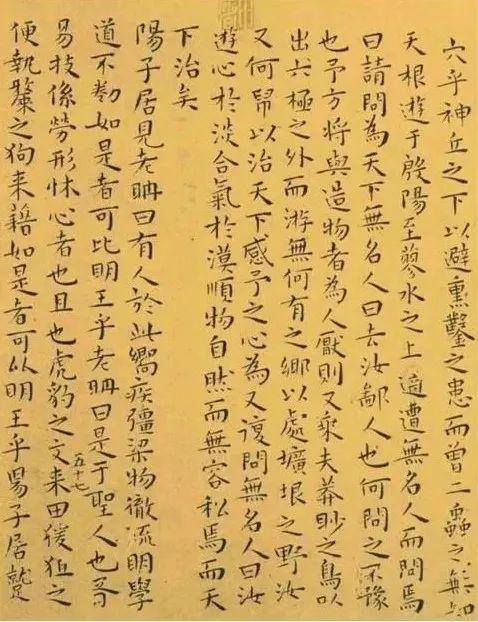 穴乎神丘之下以避熏鑿之患而曾二蟲之無知
天根遊于殷陽至蓼水之上適遭無名人而問焉
曰請問為天下無名人曰去汝鄙人也何問之不豫
也予方将與造物者為人厭則又乘夫莽眇之鳥以
出六極之外而游無何有之鄉以處壙埌之野汝
又何帠以治天下感予之心為又復問無名人曰汝
遊心於淡合氣於漠順物自然而無容私焉而天
下治矣
陽子居見老聃曰有人於此嚮疾彊梁物徹流明學
道不勌如是者可比明王乎老聃曰是于聖人也胥
易技係勞形怵心者也且也虎豹之文来田猨狙之
五十七
便執斄之狗来藉如是者可比明王乎陽子居蹵